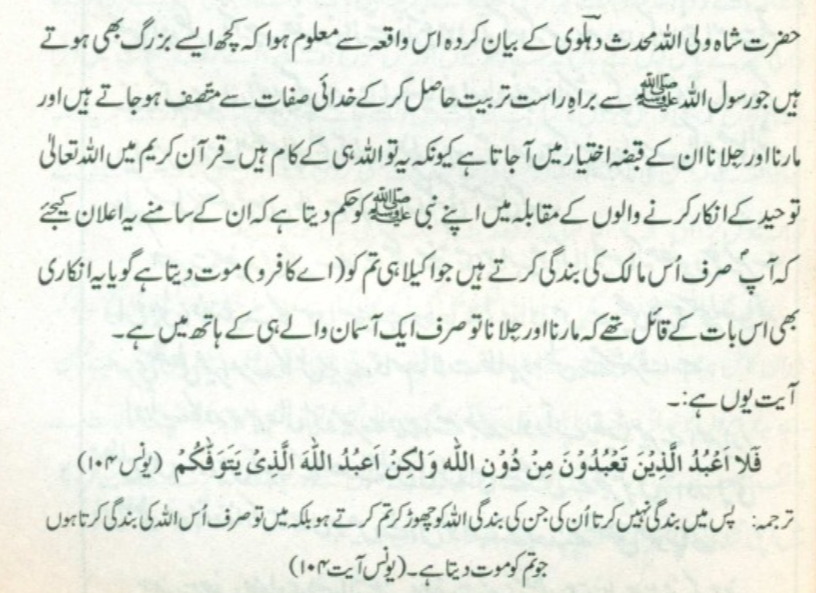 حضرت شاہ ولی اللہ محدث دہلوی کے بیان کردہ اس واقعہ سے معلوم ہوا کہ کچھ ایسے بزرگ بھی ہوتے
ہیں جو رسول اللہ ﷺ سے براہِ راست تربیت حاصل کر کے خدائی صفات سے متصف ہو جاتے ہیں اور
مارنا اور جِلانا ان کے قبضہ اختیار میں آ جاتا ہے کیونکہ یہ تو اللہ ہی کے کام ہیں۔ قرآن کریم میں اللہ تعالیٰ
توحید کے انکار کرنے والوں کے مقابلہ میں اپنے نبی ﷺ کو حکم دیتا ہے کہ ان کے سامنے یہ اعلان کیجئے
کہ آپ صرف اُس مالک کی بندگی کرتے ہیں جو اکیلا ہی تم کو (اے کافرو) موت دیتا ہے گویا یہ انکاری
بھی اس بات کے قائل تھے کہ مارنا اور جِلانا تو صرف ایک آسمان والے ہی کے ہاتھ میں ہے۔
آیت یوں ہے:۔
فَلَا اَعْبُدُ الَّذِيْنَ تَعْبُدُوْنَ مِنْ دُوْنِ اللهِ وَلٰكِنْ اَعْبُدُ اللهَ الَّذِىْ يَتَوَفّٰكُمْ (یونس ۱۰۴)
ترجمہ: پس میں بندگی نہیں کرتا اُن کی جن کی بندگی اللہ کو چھوڑ کر تم کرتے ہو بلکہ میں تو صرف اُس اللہ کی بندگی کرتا ہوں
جو تم کو موت دیتا ہے۔ (یونس آیت ۱۰۴)